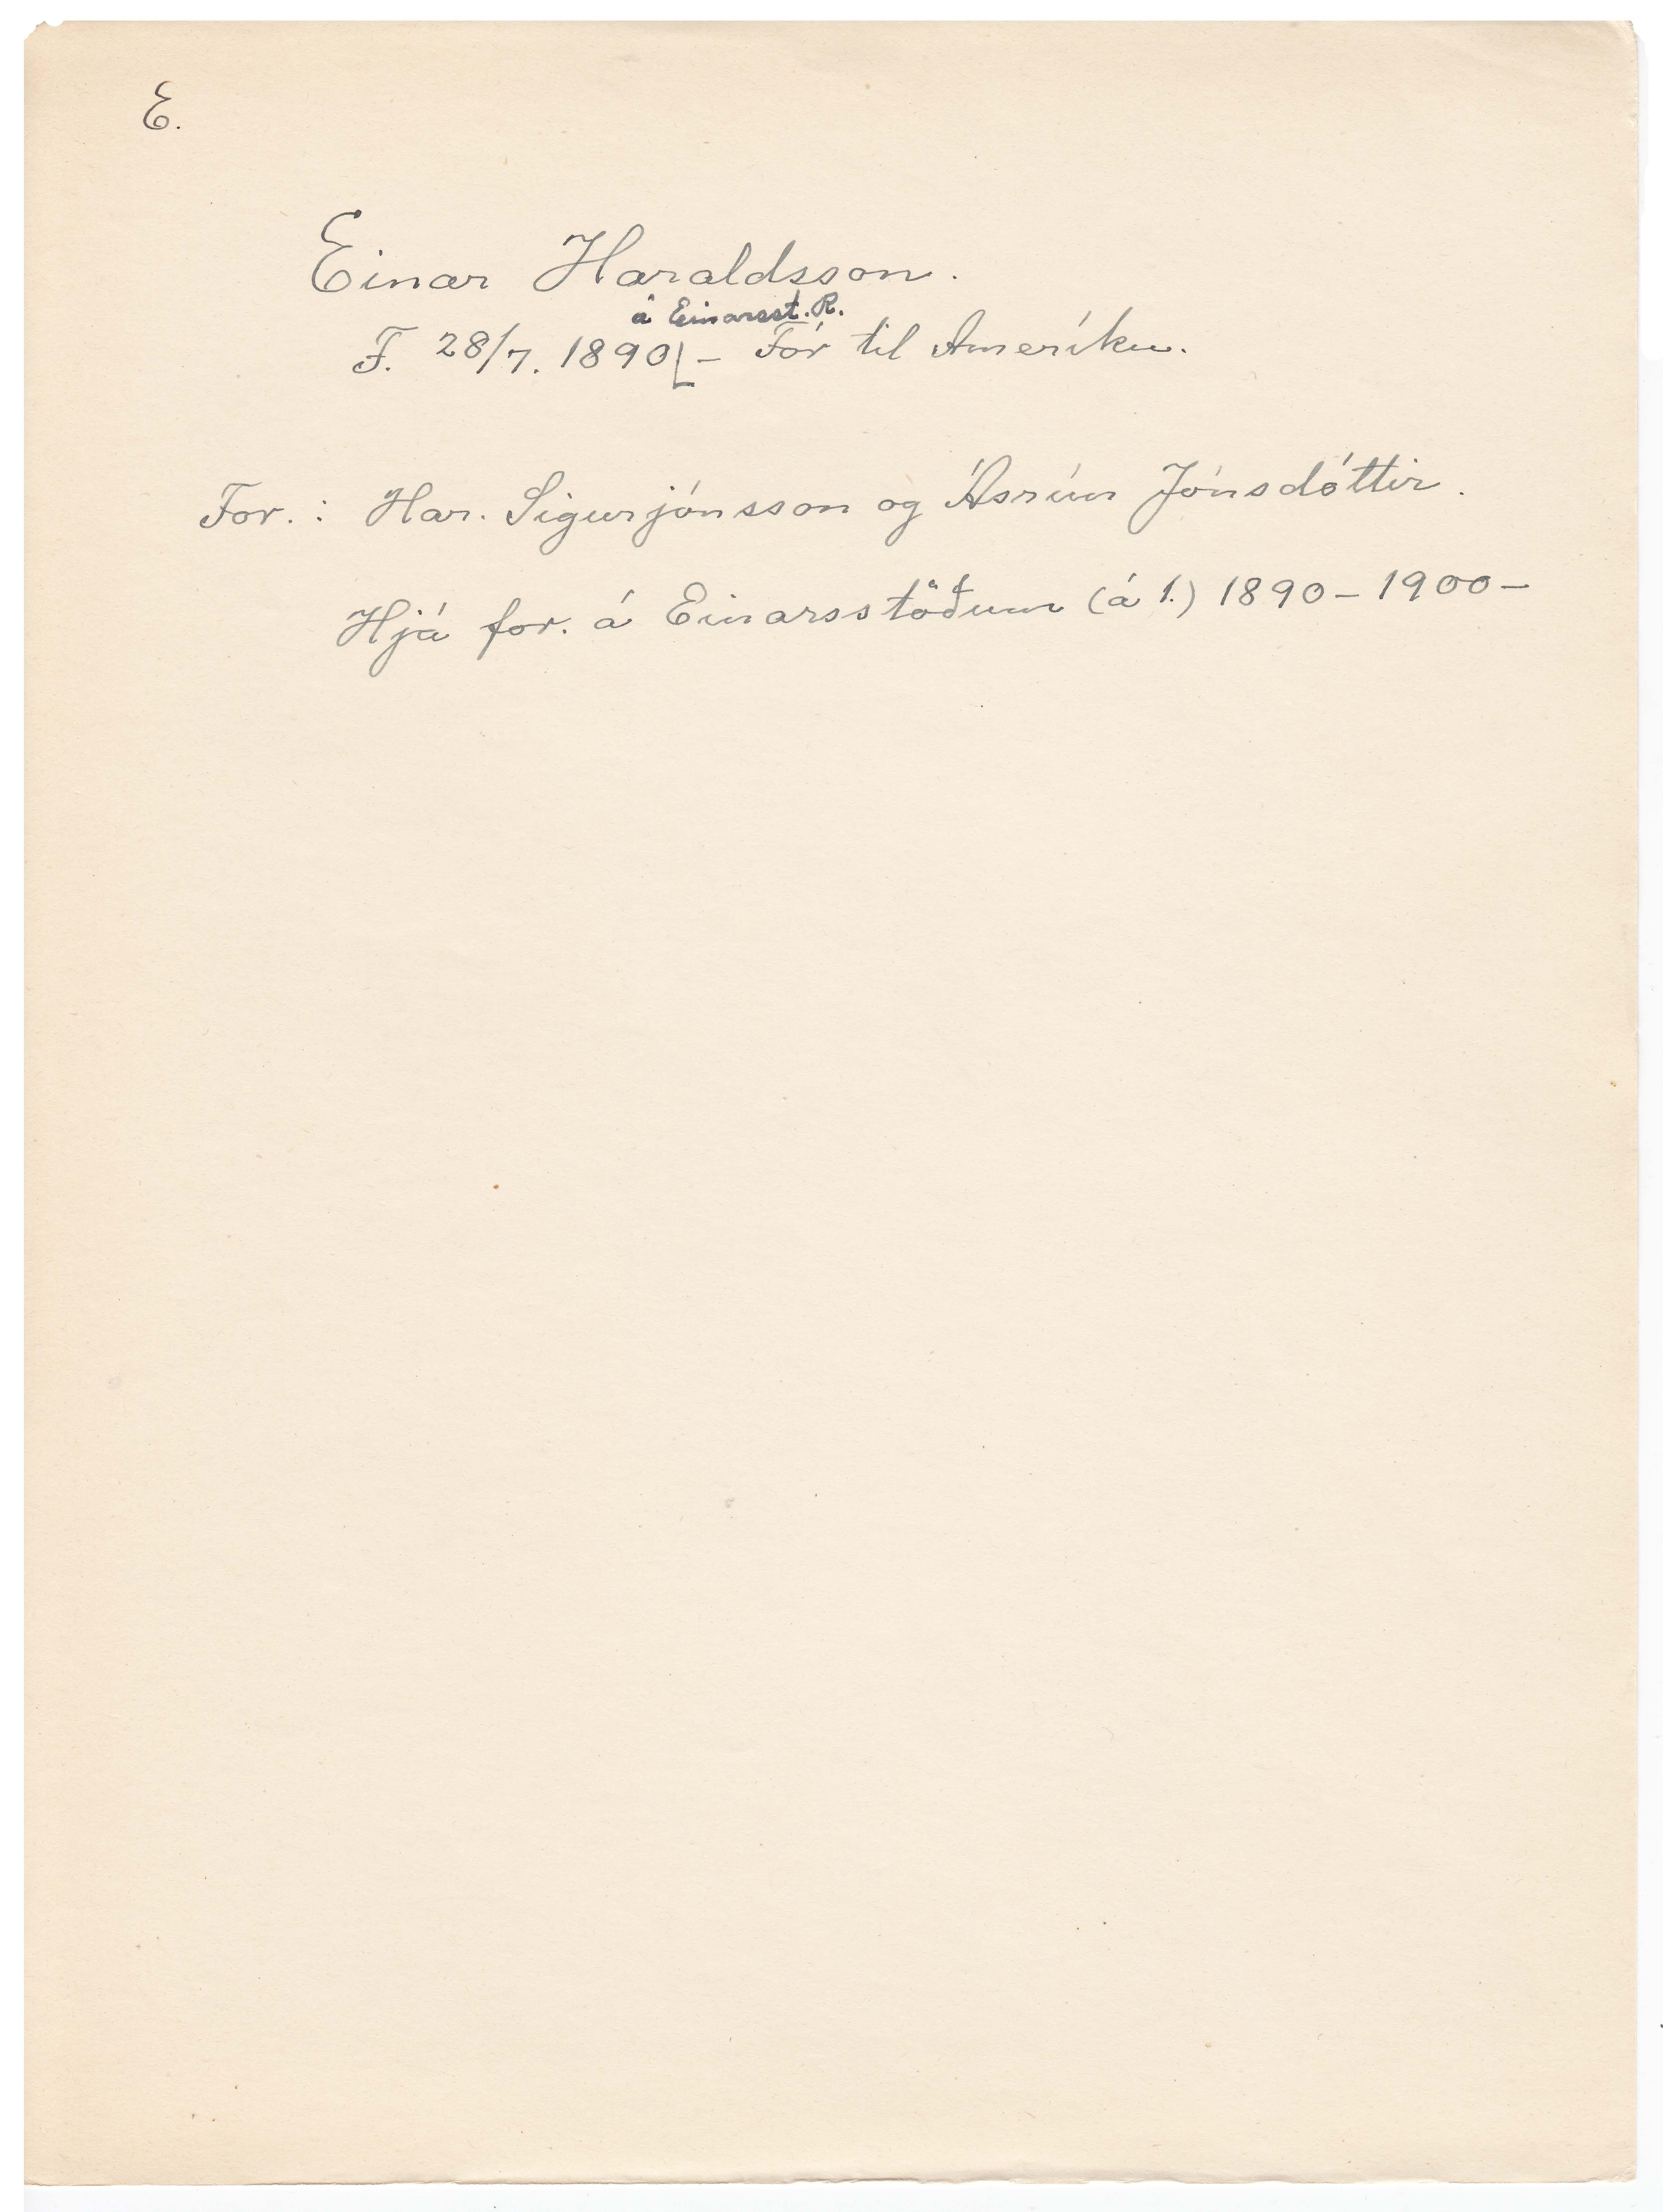 E.
Einar Haraldsson.
á Einarsst. R.
F. 28/7. 1890 – Fór til Ameríku.
For. : Har. Sigurjónsson og Ásrún Jónsdóttir.
Hjá for. á Einarsstöðum (á 1.) 1890 – 1900 –